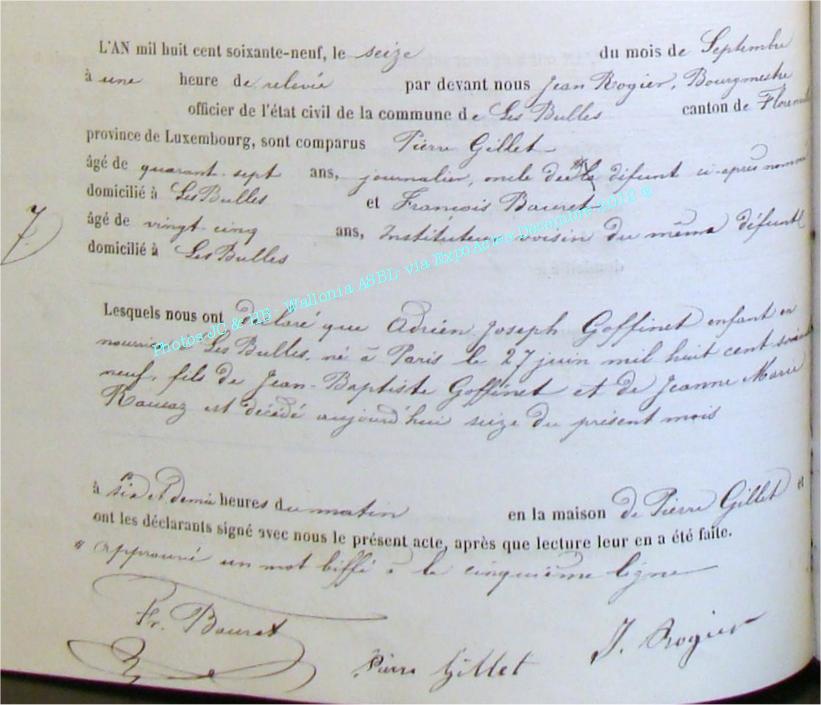 L'AN mil huit cent soixante-neuf, le seize du mois de Septembre
à une heure de relevée par devant nous Jean Rogier, Bourgmestre
officier de l'état civil de la commune de Les Bulles canton de Florenville
province de Luxembourg, sont comparus Pierre Gillet
âgé de quarant-sept ans, journalier, oncle du difunt ci-après nommé
domicilié à Les Bulles et François Bauret
7
âgé de vingt-cinq ans, Instituteur voisin du même défunt
domicilié à Les Bulles
Photos JC & HE - Wallonia ASBL; via ExpoActes Decembre 2012 ©
Lesquels nous ont déclaré que Adrien Joseph Goffinet enfant en
nourrice à Les Bulles, né à Paris le 27 juin mil huit cent soixante
neuf, fils de Jean-Baptiste Goffinet et de Jeanne Marie
est décédé aujourd'hui seize du présent mois
à six et demie heures du matin en la maison de Pierre Gillet et
ont les déclarants signé avec nous le présent acte, après que lecture leur en a été faite.
" approuvé un mot biffé à la cinquième ligne
Fr. Bauret
Pierre Gillet
J. Rogier